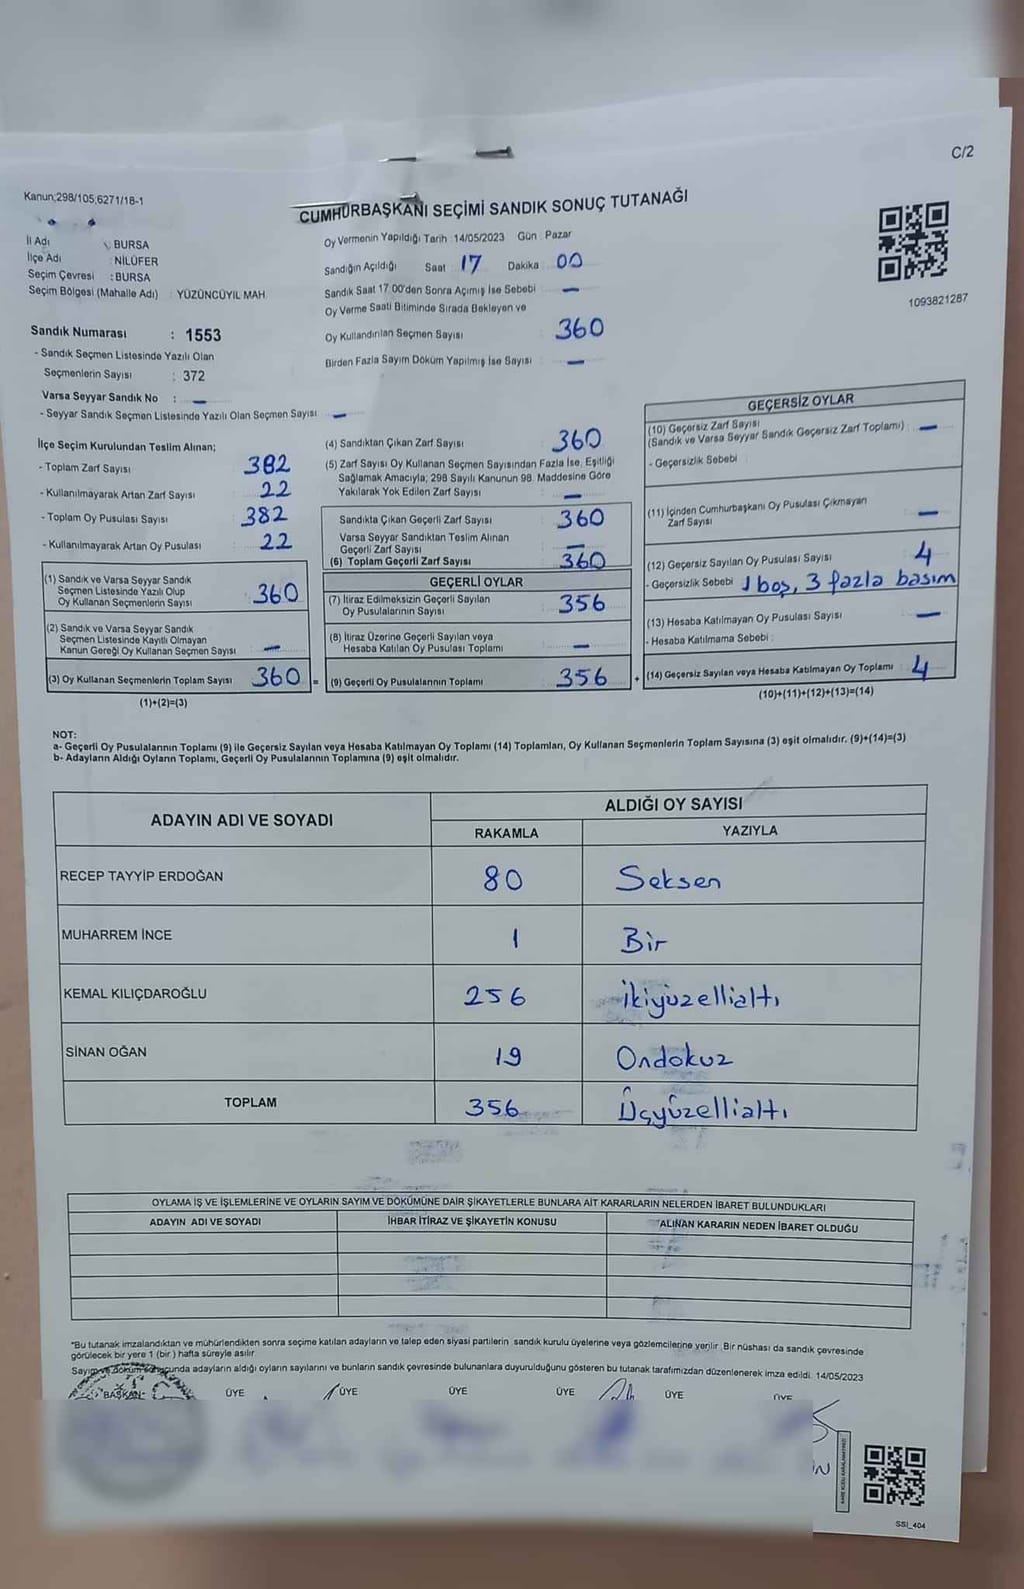 C/2
Kanun;298/105,6271/18-1
CUMHURBAŞKANI SEÇİMİ SANDIK SONUÇ TUTANAĞI
İl Adı : BURSA
İlçe Adı : NİLÜFER
Seçim Çevresi : BURSA
Seçim Bölgesi (Mahalle Adı) : YÜZÜNCÜYIL MAH.
Sandık Numarası : 1553
- Sandık Seçmen Listesinde Yazılı Olan
Seçmenlerin Sayısı : 372
Varsa Seyyar Sandık No : —
- Seyyar Sandık Seçmen Listesinde Yazılı Olan Seçmen Sayısı —
Oy Vermenin Yapıldığı Tarih : 14/05/2023 Gün : Pazar
Sandığın Açıldığı Saat 17 Dakika 00
Sandık Saat 17:00'den Sonra Açılmış İse Sebebi —
Oy Verme Saati Bitiminde Sırada Bekleyen ve
Oy Kullandırılan Seçmen Sayısı : 360
Birden Fazla Sayım Döküm Yapılmış İse Sayısı : —
1093821287
İlçe Seçim Kurulundan Teslim Alınan;
- Toplam Zarf Sayısı : 382
- Kullanılmayarak Artan Zarf Sayısı : 22
- Toplam Oy Pusulası Sayısı : 382
- Kullanılmayarak Artan Oy Pusulası : 22
(1) Sandık ve Varsa Seyyar Sandık
Seçmen Listesinde Yazılı Olup
Oy Kullanan Seçmenlerin Sayısı : 360
(2) Sandık ve Varsa Seyyar Sandık
Seçmen Listesinde Kayıtlı Olmayan
Kanun Gereği Oy Kullanan Seçmen Sayısı : —
(3) Oy Kullanan Seçmenlerin Toplam Sayısı : 360
(1)+(2)=(3)
(4) Sandıktan Çıkan Zarf Sayısı : 360
(5) Zarf Sayısı Oy Kullanan Seçmen Sayısından Fazla İse, Eşitliği
Sağlamak Amacıyla; 298 Sayılı Kanunun 98. Maddesine Göre
Yakılarak Yok Edilen Zarf Sayısı : —
Sandıkta Çıkan Geçerli Zarf Sayısı : 360
Varsa Seyyar Sandıktan Teslim Alınan
Geçerli Zarf Sayısı : —
(6) Toplam Geçerli Zarf Sayısı : 360
GEÇERLİ OYLAR
(7) İtiraz Edilmeksizin Geçerli Sayılan
Oy Pusulalarının Sayısı : 356
(8) İtiraz Üzerine Geçerli Sayılan veya
Hesaba Katılan Oy Pusulası Toplamı : —
= (9) Geçerli Oy Pusulalarının Toplamı : 356
GEÇERSİZ OYLAR
(10) Geçersiz Zarf Sayısı
(Sandık ve Varsa Seyyar Sandık Geçersiz Zarf Toplamı) : —
- Geçersizlik Sebebi :
(11) İçinden Cumhurbaşkanı Oy Pusulası Çıkmayan
Zarf Sayısı : —
(12) Geçersiz Sayılan Oy Pusulası Sayısı : 4
- Geçersizlik Sebebi : 1 boş, 3 fazla basım
(13) Hesaba Katılmayan Oy Pusulası Sayısı : —
- Hesaba Katılmama Sebebi :
+ (14) Geçersiz Sayılan veya Hesaba Katılmayan Oy Toplamı : 4
(10)+(11)+(12)+(13)=(14)
NOT:
a- Geçerli Oy Pusulalarının Toplamı (9) ile Geçersiz Sayılan veya Hesaba Katılmayan Oy Toplamı (14) Toplamları, Oy Kullanan Seçmenlerin Toplam Sayısına (3) eşit olmalıdır. (9)+(14)=(3)
b- Adayların Aldığı Oyların Toplamı, Geçerli Oy Pusulalarının Toplamına (9) eşit olmalıdır.
ADAYIN ADI VE SOYADI ALDIĞI OY SAYISI
RAKAMLA YAZIYLA
RECEP TAYYİP ERDOĞAN 80 Seksen
MUHARREM İNCE 1 Bir
KEMAL KILIÇDAROĞLU 256 İkiyüzellialtı
SİNAN OĞAN 19 Ondokuz
TOPLAM 356 Üçyüzellialtı
OYLAMA İŞ VE İŞLEMLERİNE VE OYLARIN SAYIM VE DÖKÜMÜNE DAİR ŞİKAYETLERLE BUNLARA AİT KARARLARIN NELERDEN İBARET BULUNDUKLARI
ADAYIN ADI VE SOYADI İHBAR İTİRAZ VE ŞİKAYETİN KONUSU ALINAN KARARIN NEDEN İBARET OLDUĞU
*Bu tutanak imzalandıktan ve mühürlendikten sonra seçime katılan adayların ve talep eden siyasi partilerin sandık kurulu üyelerine veya gözlemcilerine verilir. Bir nüshası da sandık çevresinde
görülecek bir yere 1 (bir) hafta süreyle asılır.
Sayım ve döküm sonucunda adayların aldığı oyların sayılarını ve bunların sandık çevresinde bulunanlara duyurulduğunu gösteren bu tutanak tarafımızdan düzenlenerek imza edildi. 14/05/2023
BAŞKAN ÜYE ÜYE ÜYE ÜYE ÜYE ÜYE
SSI_404